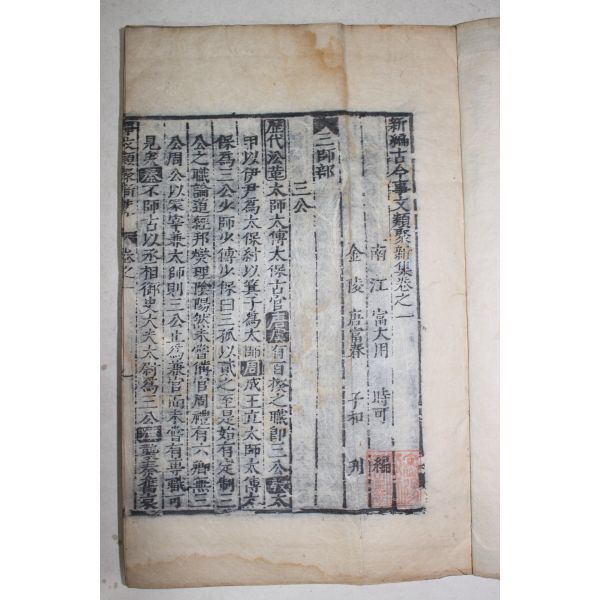 新編古今事文類聚新集卷之一
南江富大用時可編
金陵唐富春子和刋
三師部
三公
歷代沿革太師太傅太保古官唐虞有百揆之職即三公太
甲以伊尹爲太保紂以箕子爲太師周成王立太師太傅太
保爲三公少師少傅少保曰三孤以貳之至是始有定制三
公之職論道經邦燮理陰陽然未嘗備官周禮有六卿無三
公周公以冢宰兼太師則三公止爲兼官而未嘗有專職可
見矣秦不師古以丞相御史大夫太尉爲三公漢襲秦舊哀
事文類聚新集 卷之一 一